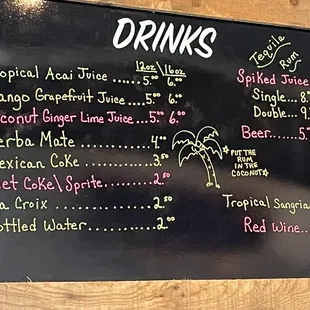 DRINKS
12oz \ 16oz
ropical Acai Juice ...... 5.00 6.00
ango Grapefruit Juice .... 5.00 6.00
conut Ginger Lime Juice .... 5.00 6.00
erba Mate ............ 4.00
exican Coke .......... 3.50
iet Coke \ Sprite ......... 2.50
a Croix .............. 2.50
ottled Water ........ 2.00
Tequila
Rum
Spiked Juice
Single... 8.
Double... 9.
Beer....... 5.
☆ PUT THE
RUM
IN THE
COCONUT ☆
Tropical Sangria
Red Wine..